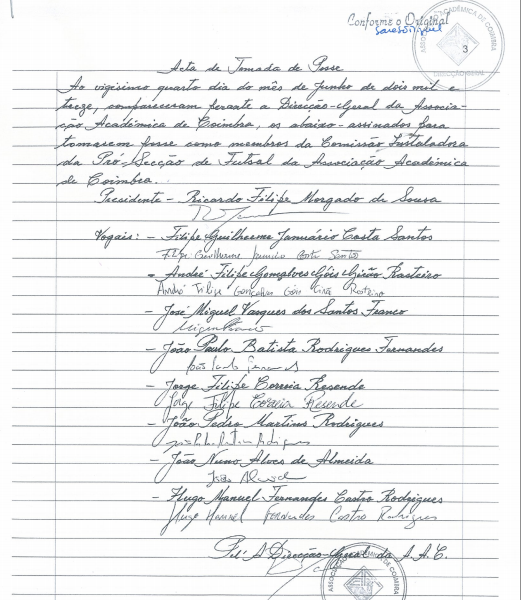 Conforme o Original
ASSOCIAÇÃO ACADÉMICA DE COIMBRA
DIRECÇÃO GERAL
3
Acta de Tomada de Posse
Ao vigésimo quarto dia do mês de Junho de dois mil e
treze, compareceram perante a Direcção-Geral da Associa-
ção Académica de Coimbra, os abaixo-assinados para
tomarem posse como membros da Comissão Instaladora
da Pró-Secção de Futsal da Associação Académica
de Coimbra.
Presidente - Ricardo Filipe Morgado de Sousa
Vogais: - Filipe Guilherme Januário Costa Santos
Filipe Guilherme Januário Costa Santos
- André Filipe Gonçalves Góis Girão Rasteiro
André Filipe Gonçalves Góis Girão Rasteiro
- José Miguel Vasques dos Santos Franco
Miguel Franco
- João Paulo Batista Rodrigues Fernandes
João Paulo Fernandes
- Jorge Filipe Correia Resende
Jorge Filipe Correia Resende
- João Pedro Martins Rodrigues
João Pedro Martins Rodrigues
- João Nuno Alves de Almeida
João Almeida
- Hugo Manuel Fernandes Castro Rodrigues
Hugo Manuel Fernandes Castro Rodrigues
Pel' A Direcção-Geral da A.A.C.
ASSOCIAÇÃO ACADÉMICA DE COIMBRA